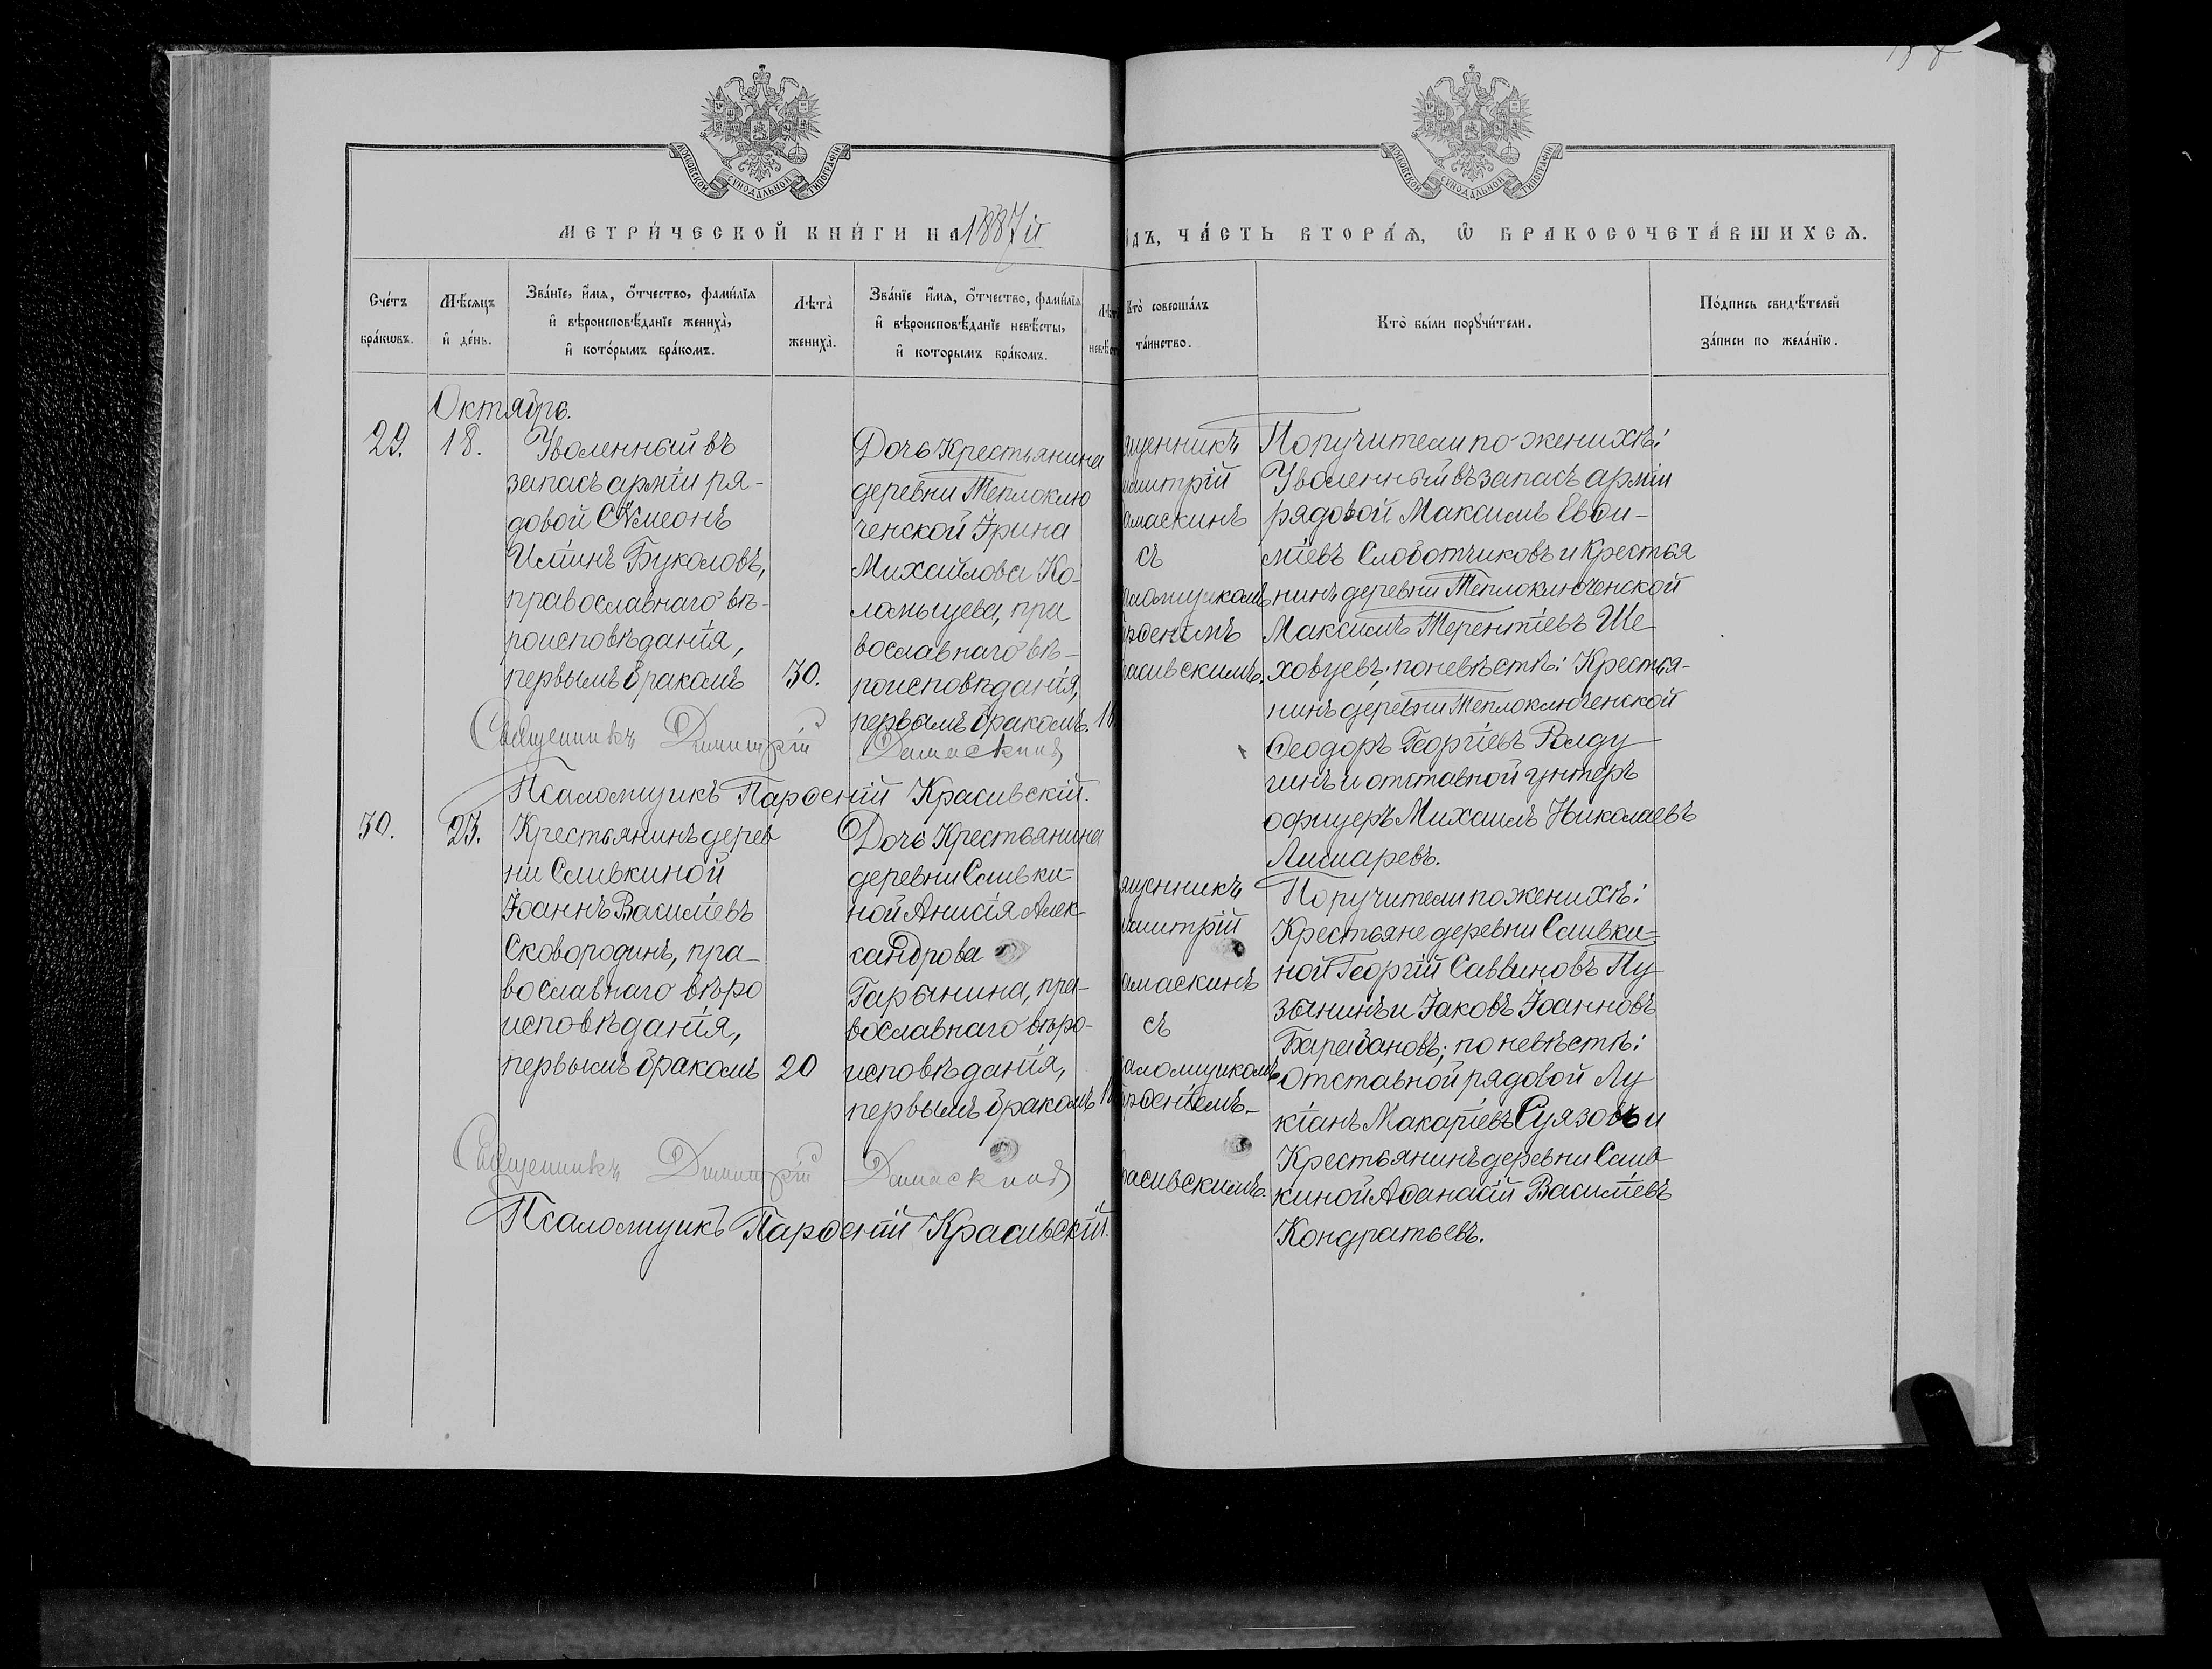 МОСКОВСКОЙ СѴНОДАЛЬНОЙ ТИПОГРАФІИ
МОСКОВСКОЙ СѴНОДАЛЬНОЙ ТИПОГРАФІИ
МЕТРИ́ЧЕСКОЙ КНИ́ГИ НА 1887й
ОДЪ, ЧА́СТЬ ВТОРА́Ѧ, Ѽ БРАКОСОЧЕТА́ВШИХСѦ.
Сче́тъ
бра́кѡвъ.
Мѣ́сяцъ
и҆ де́нь.
Зва́нїе, и҆́мѧ, о҆́тчество, фами́лїѧ
и҆ вѣроисповѣ́данїе жениха̀,
и҆ кото́рымъ бра́комъ.
Лѣта̀
жениха̀.
Зва́нїе и҆́мѧ, о҆́тчество, фами́лїѧ
и҆ вѣроисповѣ́данїе невѣ́сты,
и҆ которымъ бра́комъ.
Лѣт
невѣст
Кто̀ соверша́лъ
та́инство.
Кто̀ бы́ли порꙋчи́тели.
По́дпись свидѣ́телей
за́писи по жела́нїю.
Октябрь.
29.
18.
Уволенный въ
запасъ арміи ря-
довой Сѵмеонъ
Ильинъ Букаловъ,
православнаго вѣ-
роисповѣданія,
первымъ бракомъ
30.
Дочь Крестьянина
деревни Теплоклю
ченской Ірина
Михайлова Ко-
ломыцева, пра
вославнаго вѣ-
роисповѣданія,
первымъ бракомъ.
ященникъ
митрій
амаскинъ
съ
аломщикомъ
рѳеніемъ
расивскимъ.
Поручители по женихѣ:
Уволенный въ запасъ арміи
рядовой Максимъ Евѳи-
міевъ Слоботчиковъ и Крестья
нинъ деревни Теплоключенской
Максимъ Терентіевъ Ше
ховцевъ; по невѣстѣ: Крестья-
нинъ деревни Теплоключенской
Ѳеодоръ Георгіевъ Ролду
гинъ и отставной унтеръ
офицеръ Михаилъ Николаевъ
Лимаревъ.
Священникъ Димитрій Дамаскинъ
Псаломщикъ Парѳеній Красивскій.
30.
23.
Крестьянинъ дерев
ни Сливкиной
Іоаннъ Василіевъ
Сковородинъ, пра
вославнаго вѣро
исповѣданія,
первымъ бракомъ
20
Дочь Крестьянина
деревни Сливки-
ной Анисія Алек
сандрова
Гарынина, пра-
вославнаго вѣро-
исповѣданія,
первымъ бракомъ
ященникъ
митрій
амаскинъ
съ
аломщикомъ
рѳеніемъ
расивскимъ.
Поручители по женихѣ:
Крестьяне деревни Сливки-
ной Георгій Саввиновъ Пу
зынинъ и Іаковъ Іоанновъ
Барабановъ; по невѣстѣ:
Отставной рядовой Лу
кіанъ Макаріевъ Суязовъ и
Крестьянинъ деревни Слив
киной Аѳанасій Василіевъ
Кондратьевъ.
Священникъ Димитрій Дамаскинъ
Псаломщикъ Парѳеній Красивскій.